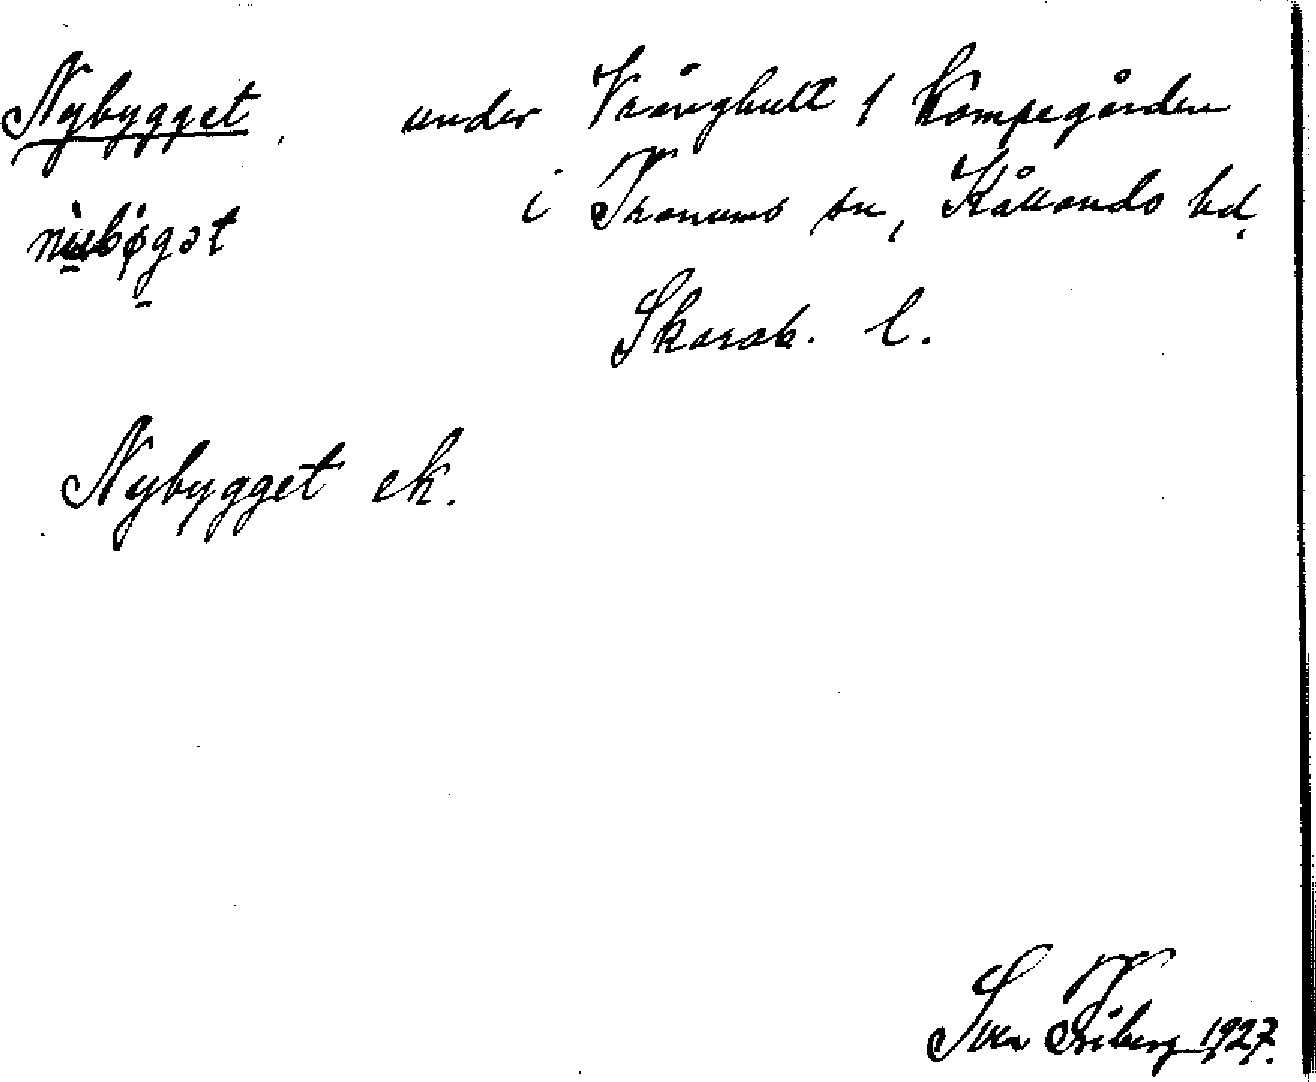 Nybygget. under Vränghult 1 Kampegården
i Tranums sn, Kållands hd.
Skarab. l.
Nybygget ek.
Sven Friberg 1927.